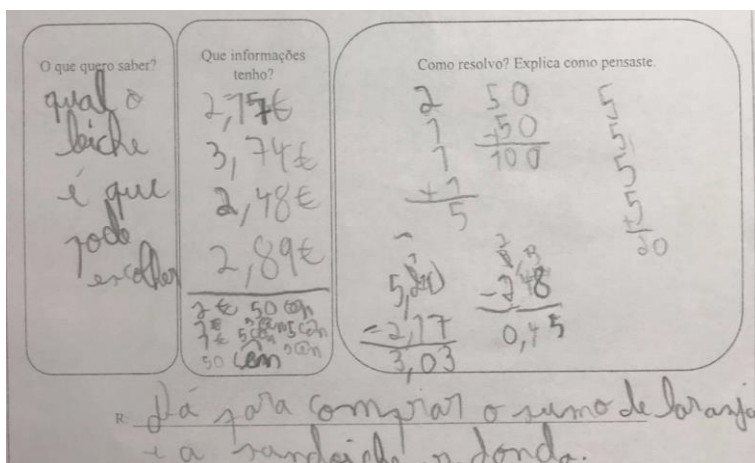 O que quero saber?
qual o
leiche
é que
pode
escolher
Que informações
tenho?
2,17€
3,74€
2,48€
2,89€
2€ 50 cen
1€ 5cen 5cen
1€ 5cen 5cen
50 cem
Como resolvo? Explica como pensaste.
2
1
1
+1
5
50
+50
100
5
5
5
+5
20
5,20
-2,17
3,03
-2,48
0,45
R: Dá para comprar o sumo de laranja
e a sandeiche redonda.